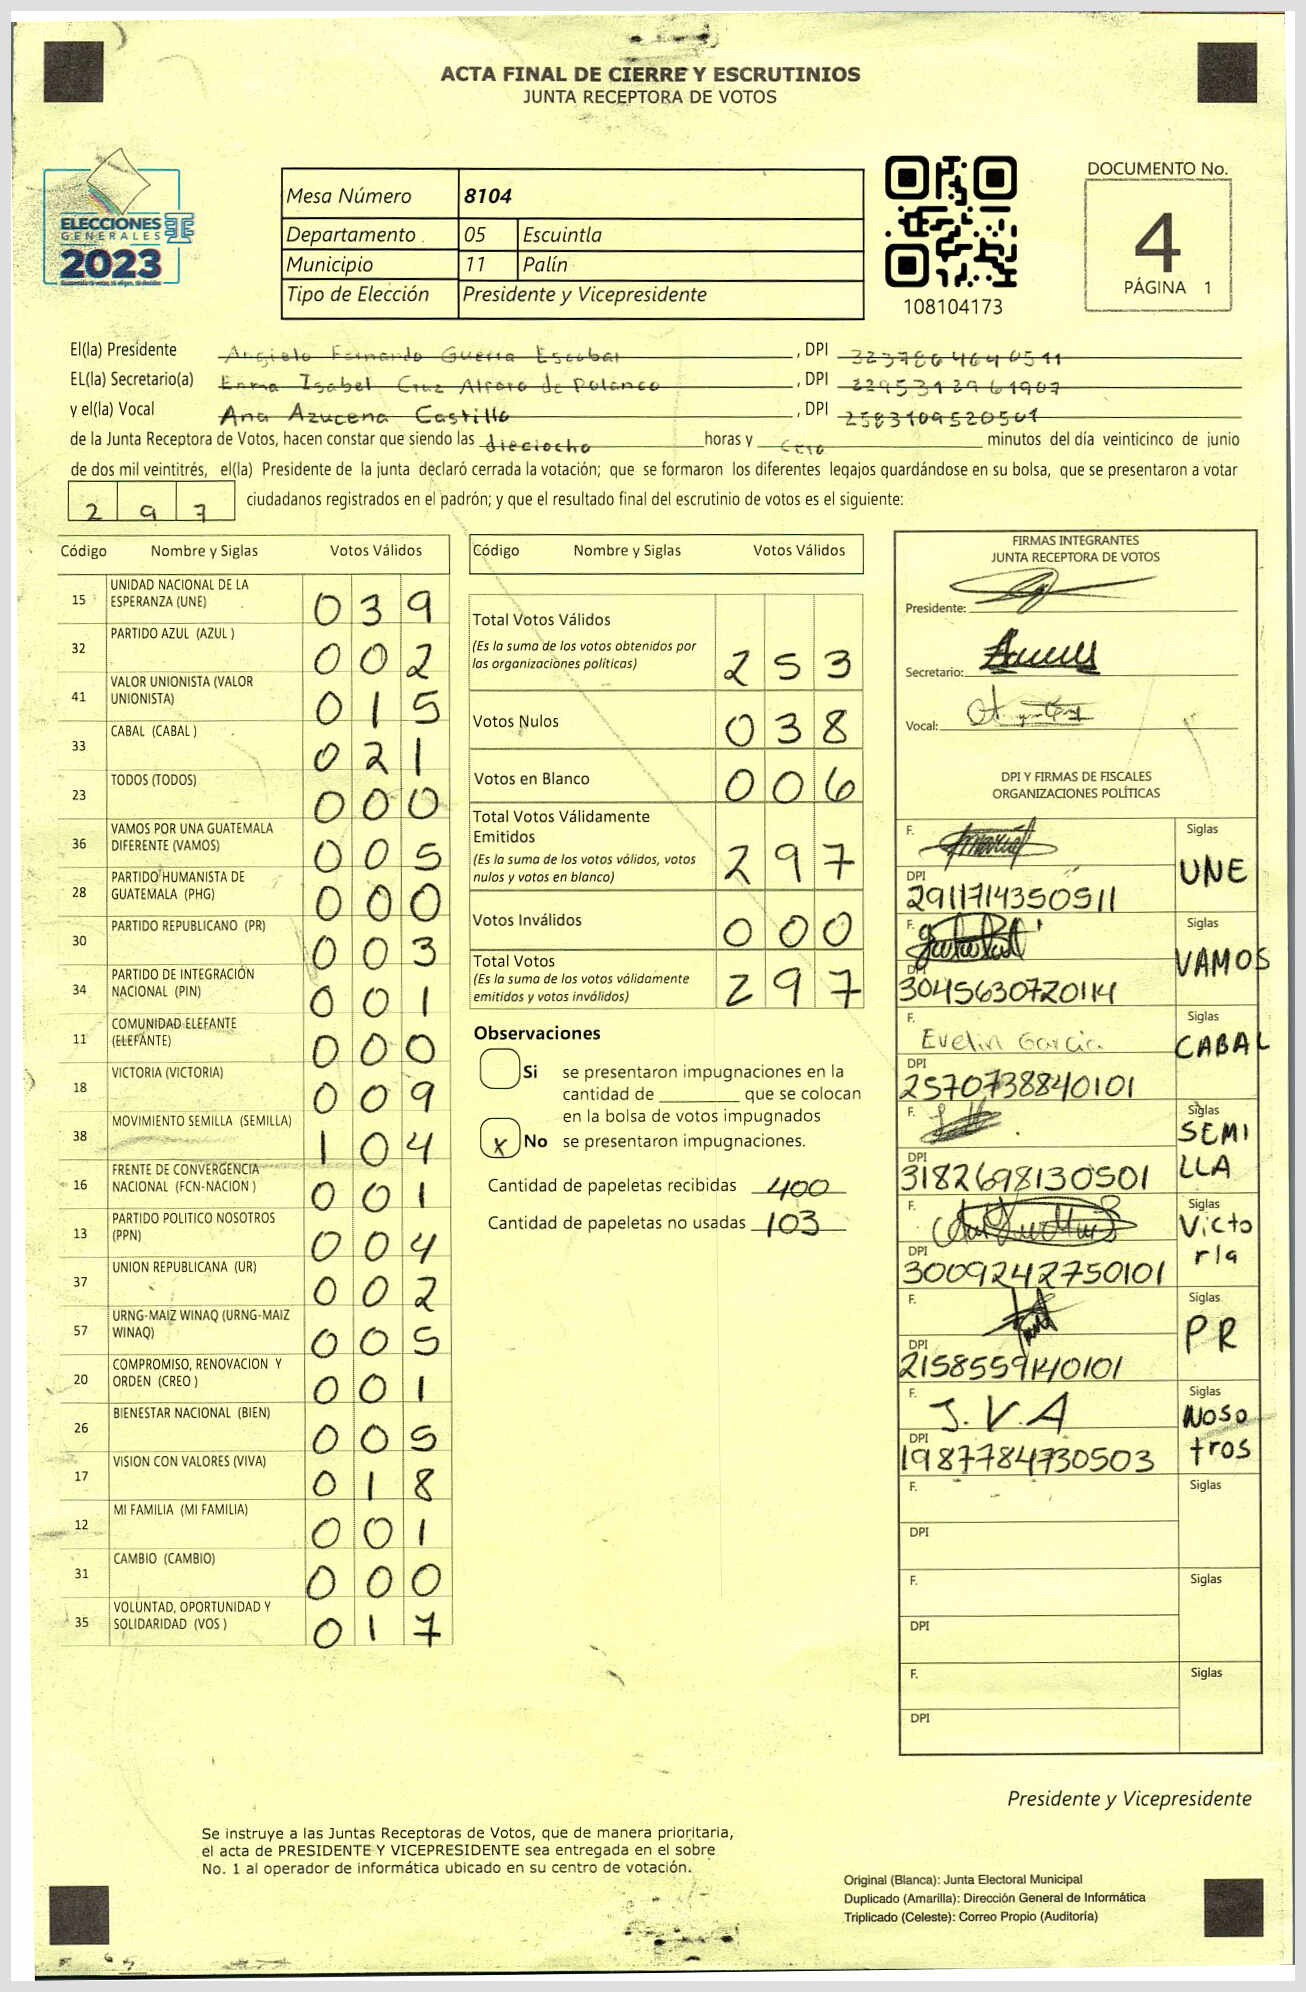 ACTA FINAL DE CIERRE Y ESCRUTINIOS
JUNTA RECEPTORA DE VOTOS
ELECCIONES
GENERALES
2023
Mesa Número 8104
Departamento 05 Escuintla
Municipio 11 Palín
Tipo de Elección Presidente y Vicepresidente
108104173
DOCUMENTO No.
4
PÁGINA 1
El(la) Presidente Angielo Fernando Guerra Escobar, DPI 3237864640511
EL(la) Secretario(a) Enma Isabel Cruz Alfaro de Polanco, DPI 2295312961907
y el(la) Vocal Ana Azucena Castillo, DPI 2583109520501
de la Junta Receptora de Votos, hacen constar que siendo las dieciocho horas y Cero minutos del día veinticinco de junio
de dos mil veintitrés, el(la) Presidente de la junta declaró cerrada la votación; que se formaron los diferentes legajos guardándose en su bolsa, que se presentaron a votar
297 ciudadanos registrados en el padrón; y que el resultado final del escrutinio de votos es el siguiente:
Código Nombre y Siglas Votos Válidos
15 UNIDAD NACIONAL DE LA
ESPERANZA (UNE) 039
32 PARTIDO AZUL (AZUL ) 002
41 VALOR UNIONISTA (VALOR
UNIONISTA) 015
33 CABAL (CABAL ) 021
23 TODOS (TODOS) 000
36 VAMOS POR UNA GUATEMALA
DIFERENTE (VAMOS) 005
28 PARTIDO HUMANISTA DE
GUATEMALA (PHG) 000
30 PARTIDO REPUBLICANO (PR) 003
34 PARTIDO DE INTEGRACIÓN
NACIONAL (PIN) 001
11 COMUNIDAD ELEFANTE
(ELEFANTE) 000
18 VICTORIA (VICTORIA) 009
38 MOVIMIENTO SEMILLA (SEMILLA) 104
16 FRENTE DE CONVERGENCIA
NACIONAL (FCN-NACION ) 001
13 PARTIDO POLITICO NOSOTROS
(PPN) 004
37 UNION REPUBLICANA (UR) 002
57 URNG-MAIZ WINAQ (URNG-MAIZ
WINAQ) 005
20 COMPROMISO, RENOVACION Y
ORDEN (CREO ) 001
26 BIENESTAR NACIONAL (BIEN) 005
17 VISION CON VALORES (VIVA) 018
12 MI FAMILIA (MI FAMILIA) 001
31 CAMBIO (CAMBIO) 000
35 VOLUNTAD, OPORTUNIDAD Y
SOLIDARIDAD (VOS ) 017
Código Nombre y Siglas Votos Válidos
Total Votos Válidos
(Es la suma de los votos obtenidos por
las organizaciones políticas) 253
Votos Nulos 038
Votos en Blanco 006
Total Votos Válidamente
Emitidos
(Es la suma de los votos válidos, votos
nulos y votos en blanco) 297
Votos Inválidos 000
Total Votos
(Es la suma de los votos válidamente
emitidos y votos inválidos) 297
Observaciones
Si se presentaron impugnaciones en la
cantidad de ________ que se colocan
en la bolsa de votos impugnados
x No se presentaron impugnaciones.
Cantidad de papeletas recibidas 400
Cantidad de papeletas no usadas 103
FIRMAS INTEGRANTES
JUNTA RECEPTORA DE VOTOS
Presidente:
Secretario:
Vocal:
DPI Y FIRMAS DE FISCALES
ORGANIZACIONES POLÍTICAS
F. Siglas
UNE
DPI
2911714350511
F. Siglas
VAMOS
DPI
3045630720114
F. Siglas
Evelin Garcia CABAL
DPI
2570738840101
F. Siglas
SEMI
LLA
DPI
3182698130501
F. Siglas
Victo
ria
DPI
3009242750101
F. Siglas
PR
DPI
2158559140101
F. Siglas
J.V.A Noso
tros
DPI
1987784730503
F. Siglas
DPI
F. Siglas
DPI
F. Siglas
DPI
Presidente y Vicepresidente
Se instruye a las Juntas Receptoras de Votos, que de manera prioritaria,
el acta de PRESIDENTE Y VICEPRESIDENTE sea entregada en el sobre
No. 1 al operador de informática ubicado en su centro de votación.
Original (Blanca): Junta Electoral Municipal
Duplicado (Amarilla): Dirección General de Informática
Triplicado (Celeste): Correo Propio (Auditoría)